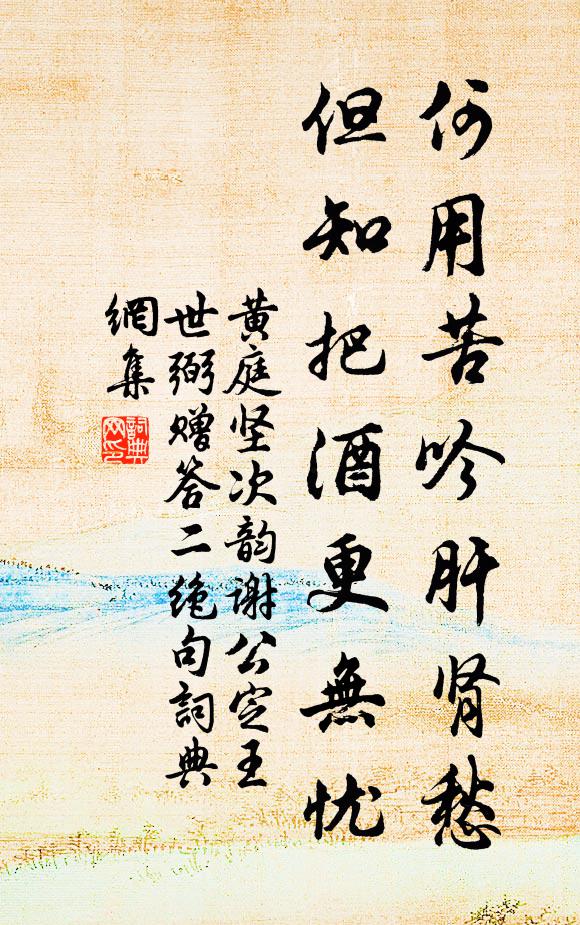 何用苦吟肝肾愁
但知把酒更無忧
黄庭坚次韵谢公定王
世弼赠答二绝句詞典
網集
詞典
网印